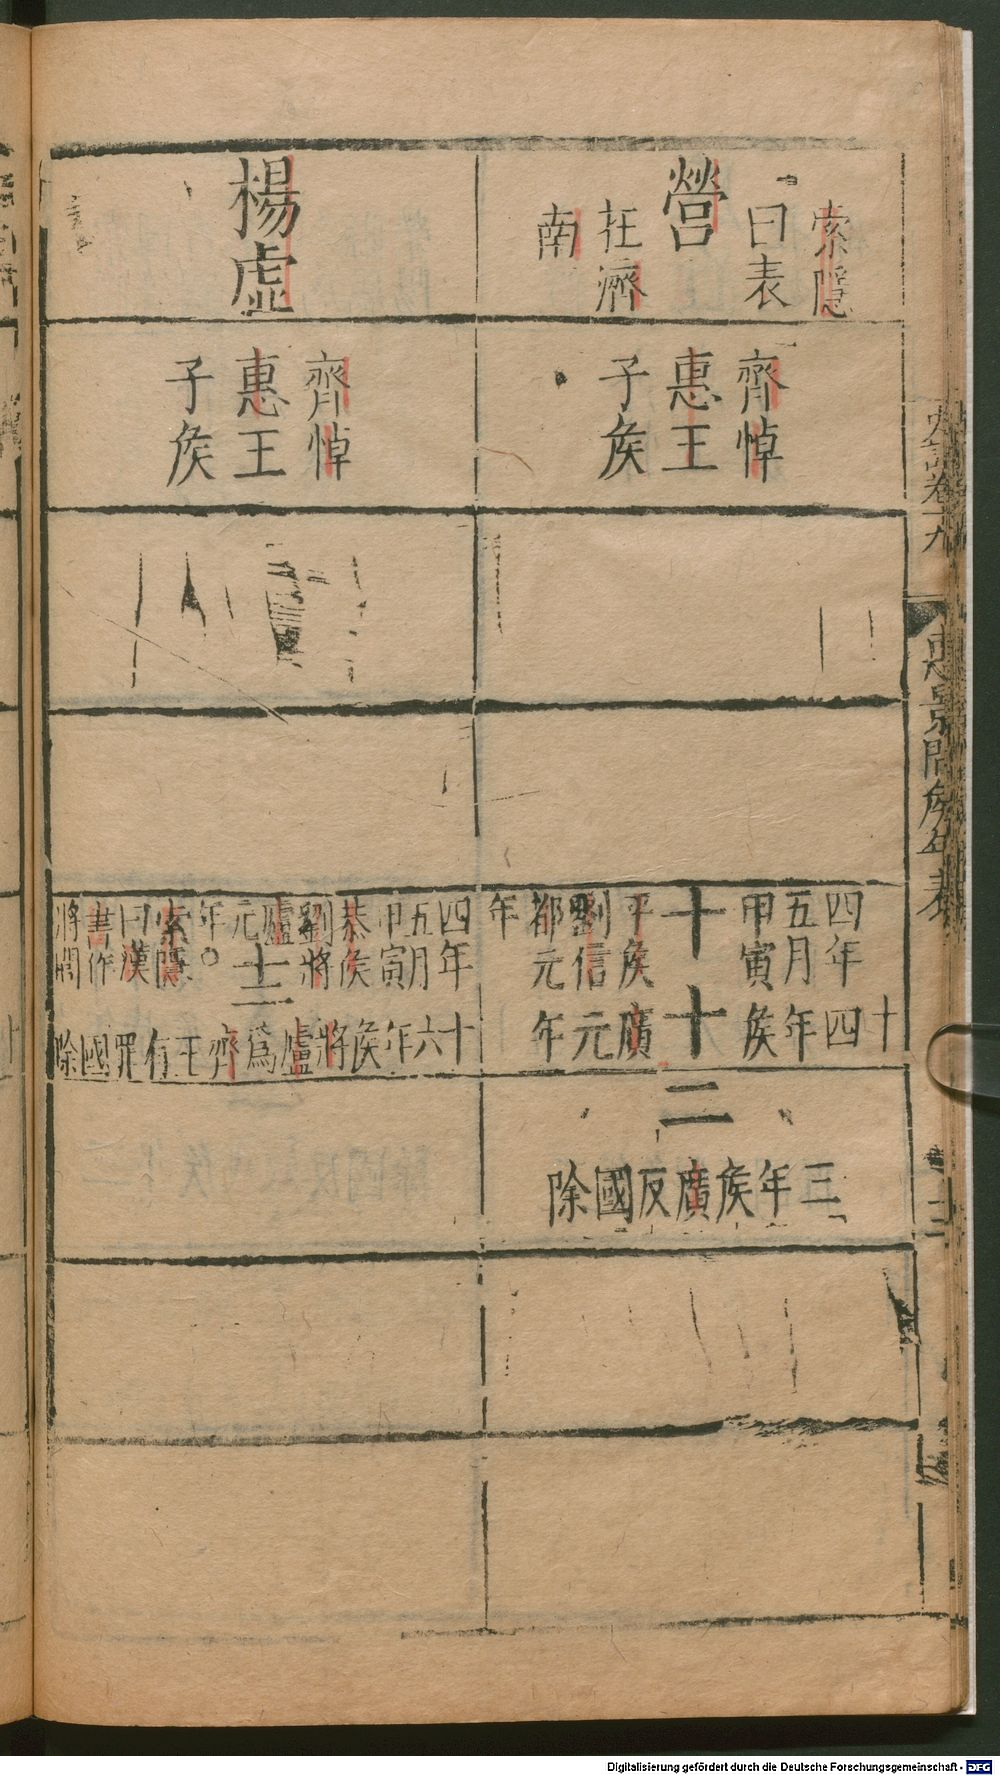 史記卷十九
惠景間侯年表
營
索隱
曰表
在濟
南
齊悼
惠王
子侯
四年
五月
甲寅
十
平侯
劉信
都元
年
十
四年
侯
十
廣
元
年
二
三年侯廣反國除
楊虛
齊悼
惠王
子侯
四年
五月
甲寅
恭侯
劉將
廬
元
年
十二
索隱
曰漢
書作
將閭
十六年侯將廬爲齊王有罪國除
Digitalisierung gefördert durch die Deutsche Forschungsgemeinschaft - DFG